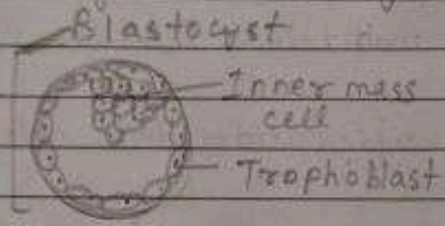 Blastocyst
Inner mass
cell
Trophoblast